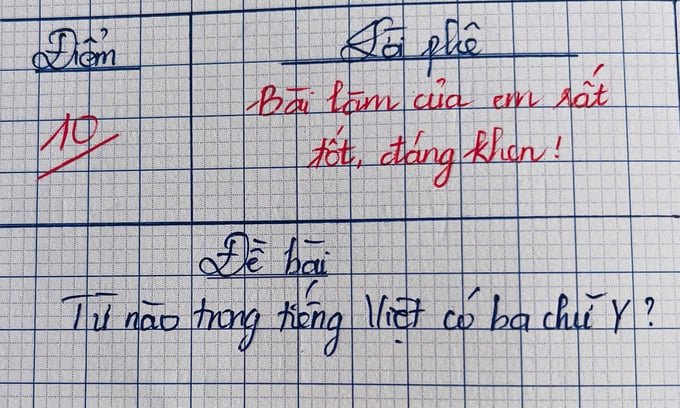 Điểm
Lời phê
10
Bài làm của em rất
tốt, đáng khen!
Đề bài
Từ nào trong tiếng Việt có ba chữ Y?